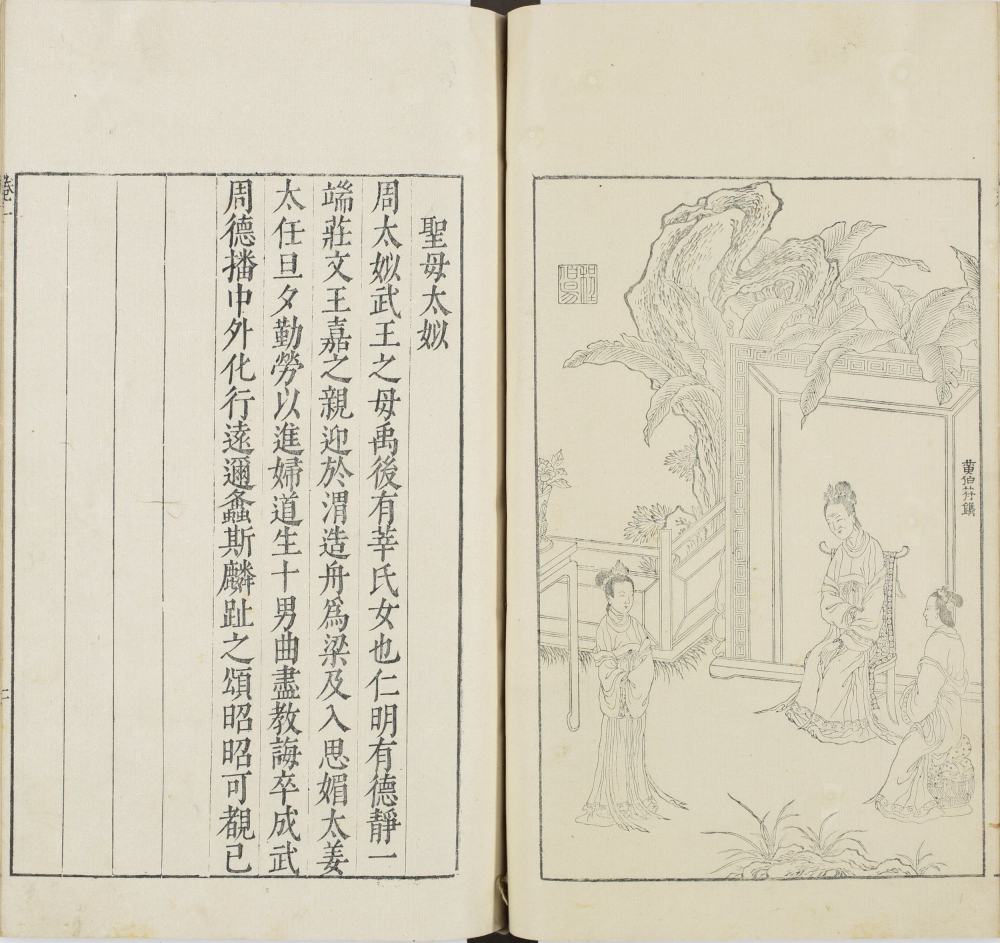 黃伯符鐫
聖母太姒
周太姒武王之母禹後有莘氏女也仁明有德靜一
端莊文王嘉之親迎於渭造舟爲梁及入思媚太姜
太任旦夕勤勞以進婦道生十男曲盡教誨卒成武
周德播中外化行遠邇螽斯麟趾之頌昭昭可覩已
卷一